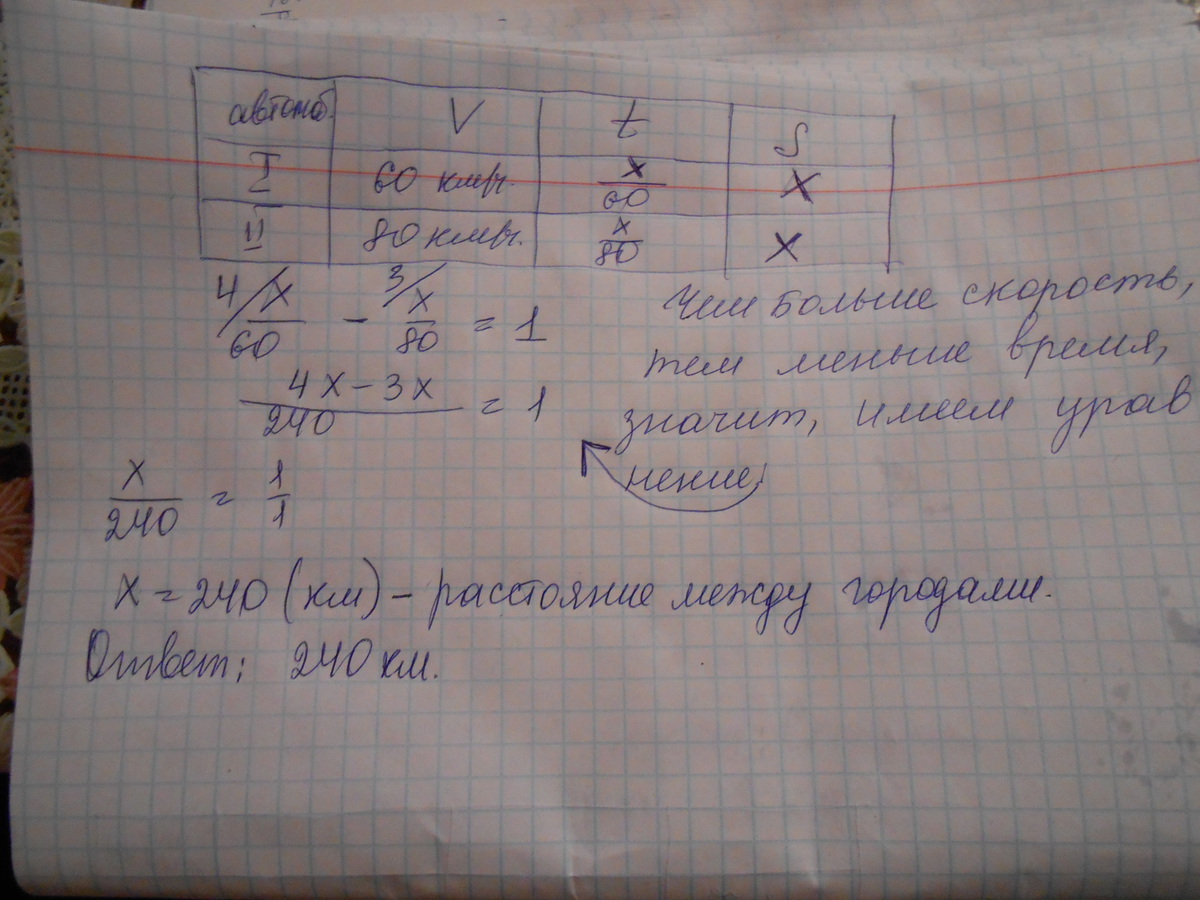 автомоб. V t S
I 60 км/ч. x/60 x
II 80 км/ч. x/80 x
4/ x/60 - 3/ x/80 = 1
4x - 3x / 240 = 1
Чем больше скорость,
тем меньше время,
значит, имеем урав
нение,
x/240 = 1/1
x = 240 (км) – расстояние между городами.
Ответ; 240 км.